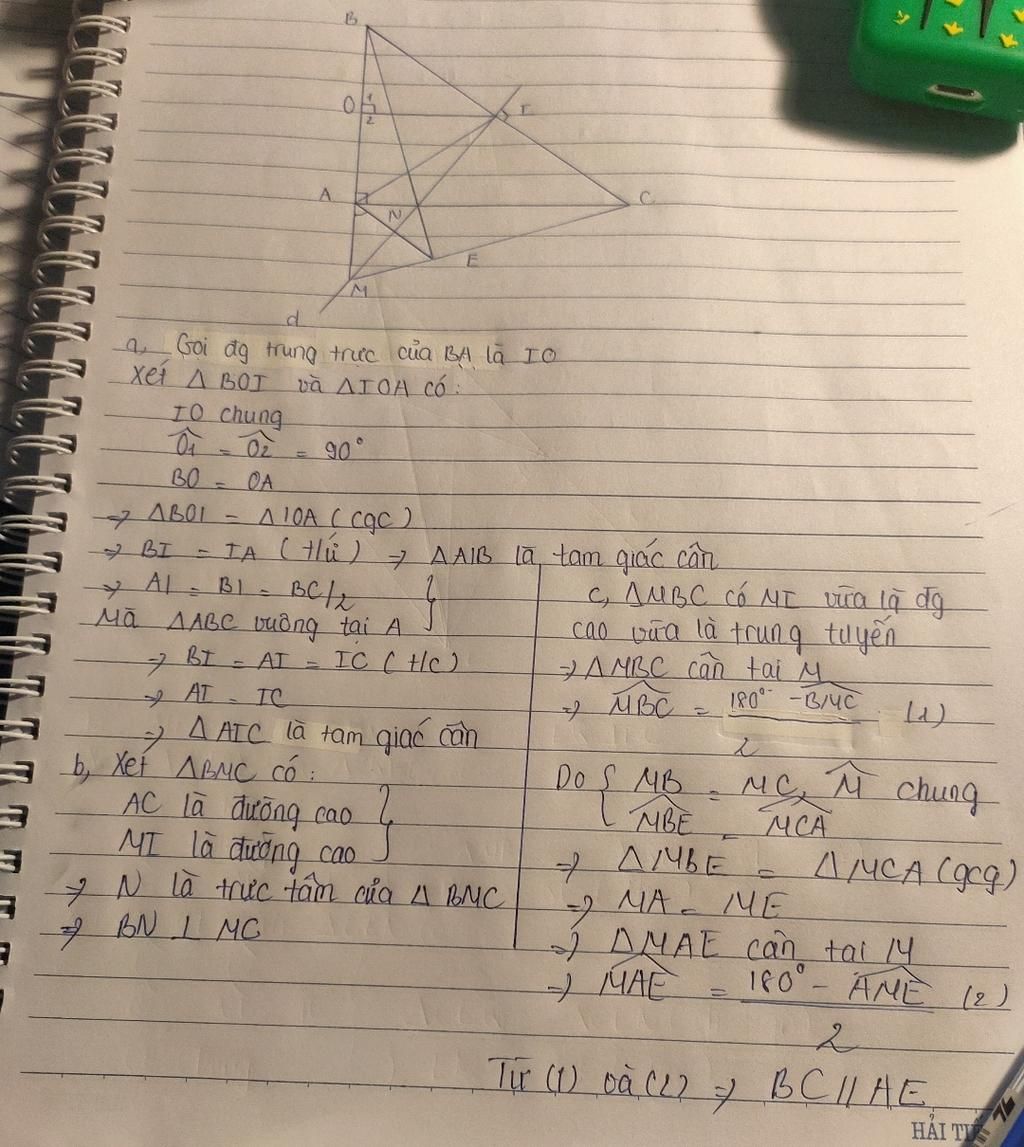 B
O
1
2
I
A
N
C
E
M
d
a, Gọi đg trung trực của BA là IO
Xét △BOI và △IOA có:
IO chung
Ô1 = Ô2 = 90°
BO = OA
=> △BOI = △IOA (cgc)
=> BI = IA (t/ứ) => △AIB là tam giác cân
=> AI = BI = BC/2 }
Mà △ABC vuông tại A
=> BI = AI = IC (t/c)
=> AI = IC
=> △AIC là tam giác cân
b, Xét △BMC có:
AC là đường cao }
MI là đường cao
=> N là trực tâm của △BMC
=> BN ⊥ MC
c, △MBC có MI vừa là đg
cao vừa là trung tuyến
=> △MBC cân tại M
=> MBC = 180° - BMC / 2 (1)
Do { MB = MC, M chung
MBE = MCA
=> △MBE = △MCA (gcg)
=> MA = ME
=> △MAE cân tại M
=> MAE = 180° - AME / 2 (2)
Từ (1) và (2) => BC // AE